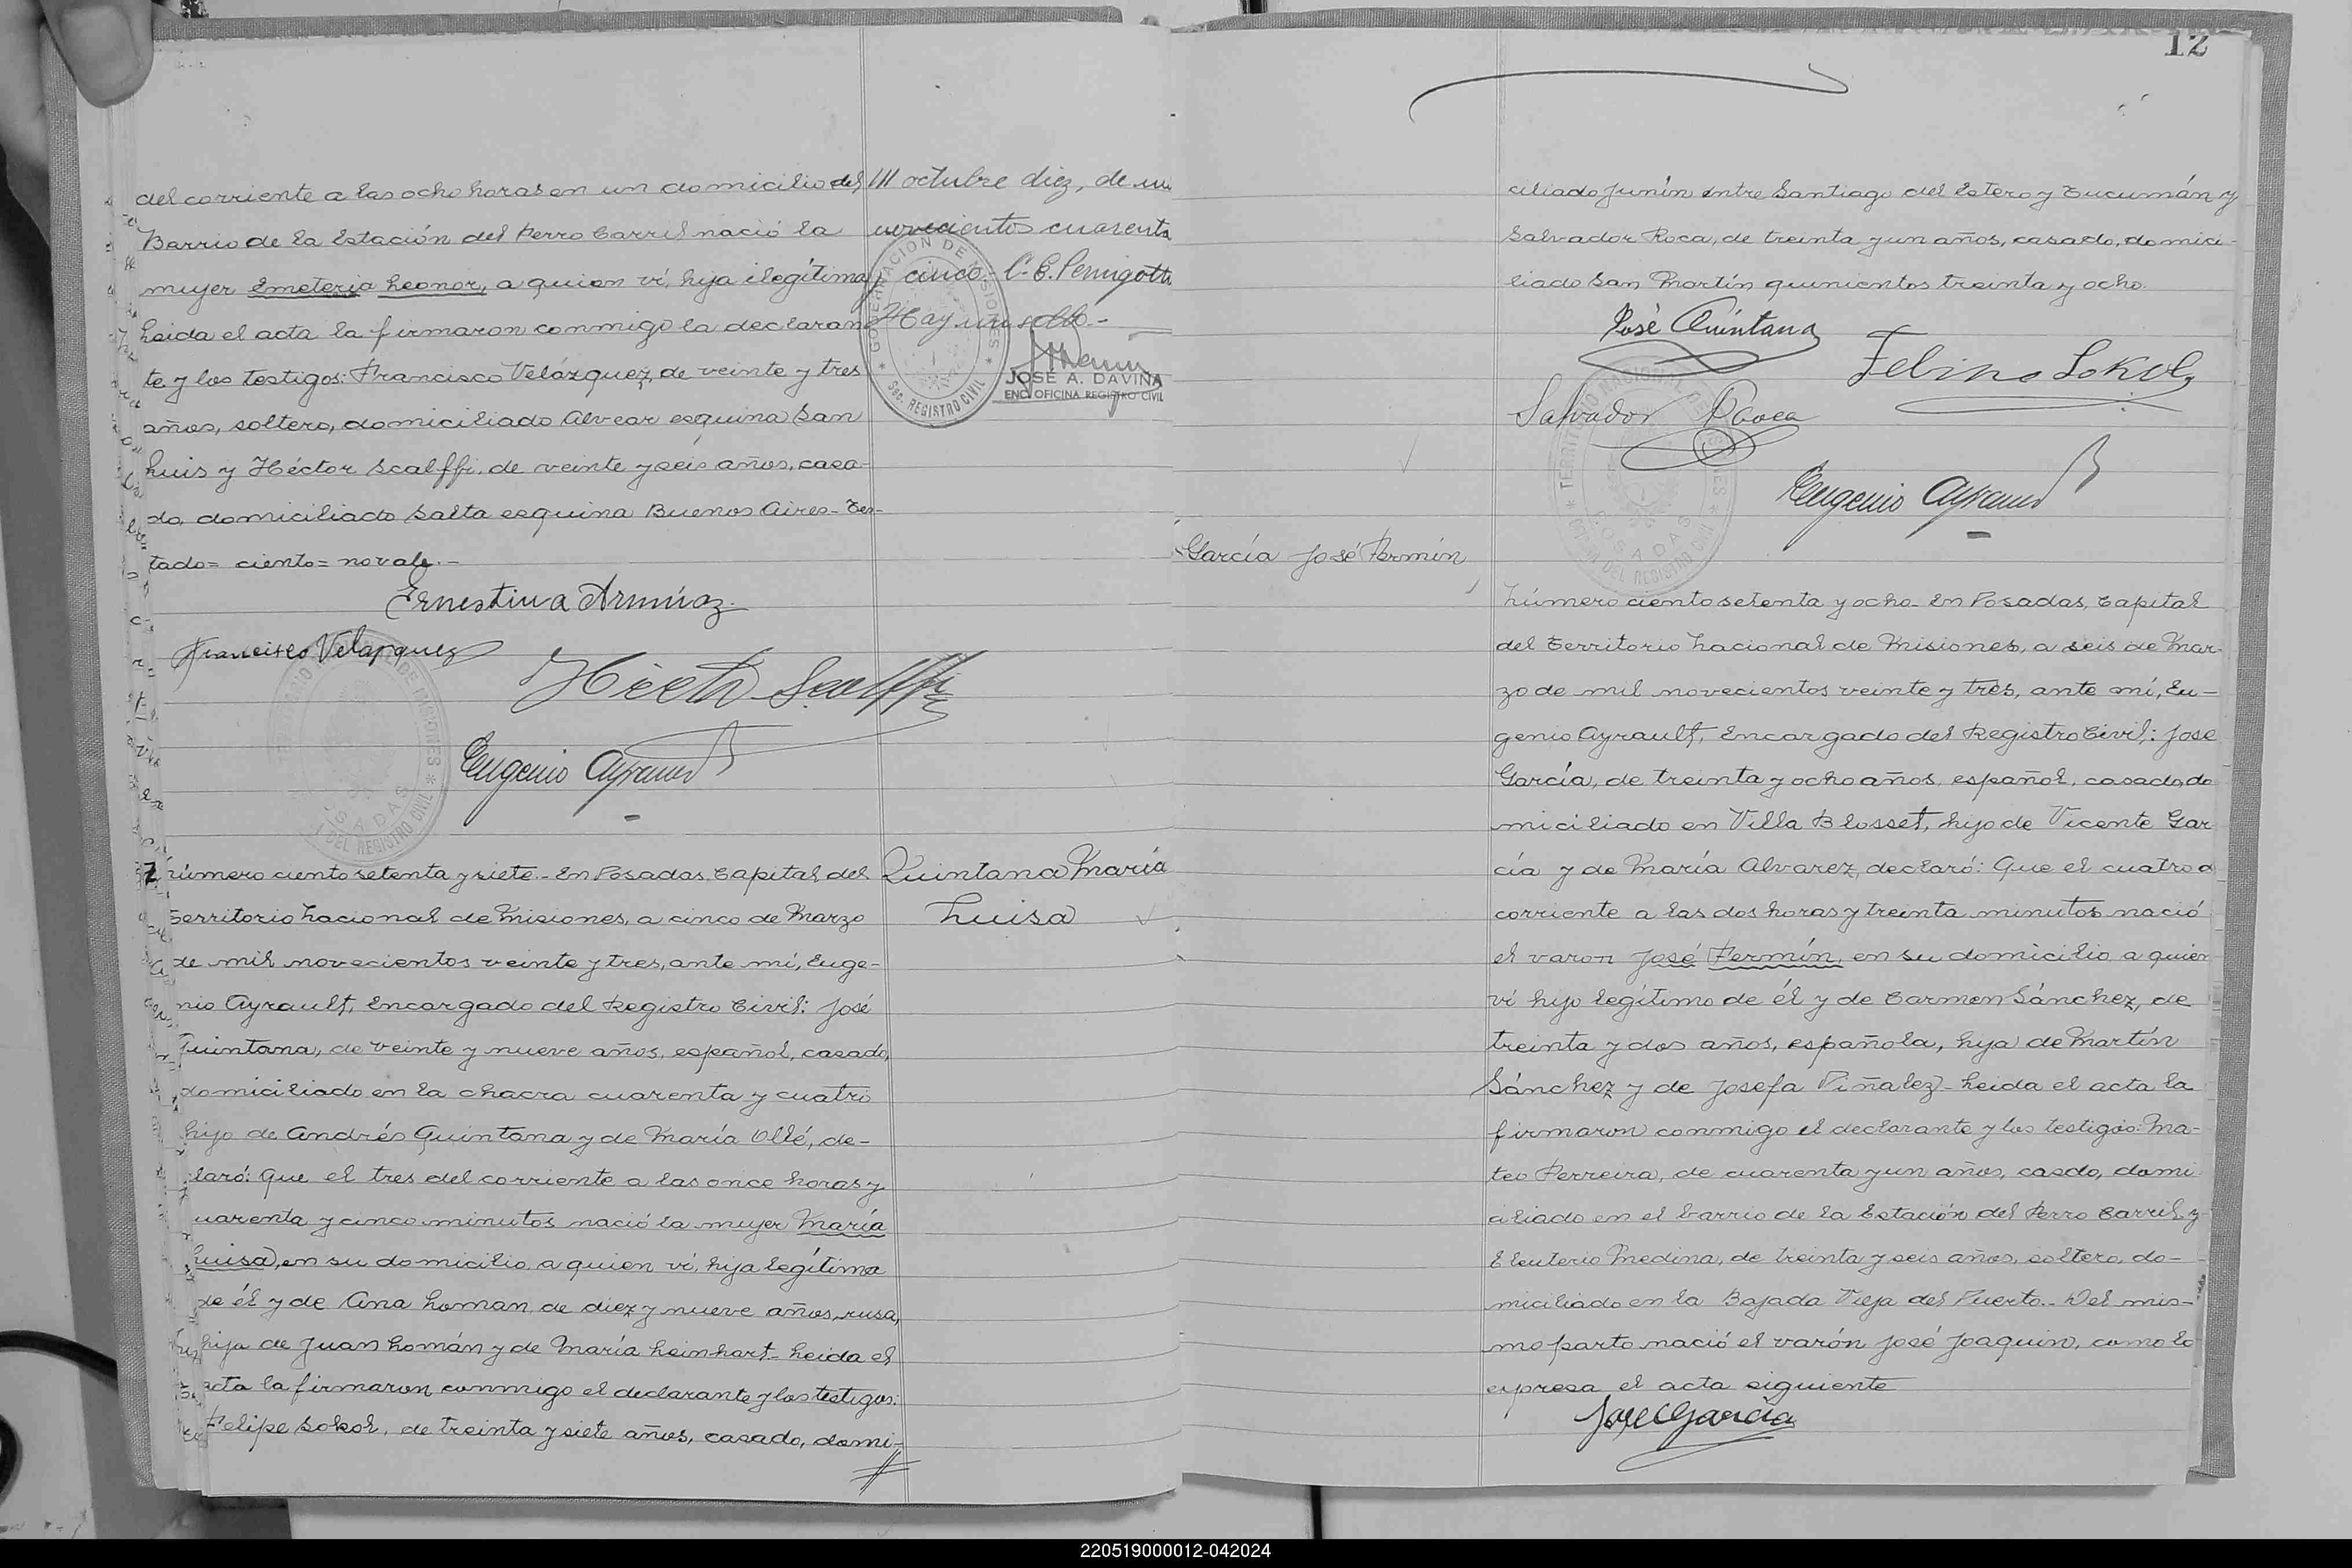 del corriente a las ocho horas en un domicilio del
Barrio de la Estación del Ferro Carril nació la
mujer Emeteria Leonor, a quien ví, hija ilegítima
Leida el acta la firmaron conmigo la declaran
te y los testigos: Francisco Velázquez, de veinte y tres
años, soltero, domiciliado Alvear esquina San
Luis y Héctor Scalffi, de veinte y seis años, casa-
do, domiciliado Salta esquina Buenos Aires- Tes-
tado= ciento= no vale.-
Ernestina
Francisco Velazquez
Scalffi
Eugenio Ayrault
/// octubre diez, de mi
novecientos cuarenta
y cinco.- Penigotti
Hay un sello.-
GOBERNACION DE MISIONES
Sec. REGISTRO CIVIL
JOSÉ A. DAVIÑA
ENC. OFICINA REGISTRO CIVIL
Número ciento setenta y siete.- En Posadas, Capital del
Territorio Nacional de Misiones, a cinco de Marzo
de mil novecientos veinte y tres, ante mí, Euge-
nio Ayrault, Encargado del Registro Civil: José
Quintana, de veinte y nueve años, español, casado,
domiciliado en la chacra cuarenta y cuatro
hijo de Andrés Quintana y de María Ollé, de-
claró: Que el tres del corriente a las once horas y
cuarenta y cinco minutos nació la mujer María
Luisa, en su domicilio, a quien ví, hija legítima
de él y de Ana Loman, de diez y nueve años, rusa,
hija de Juan Lomán y de María Leinhart- Leida el
acta la firmaron conmigo el declarante y los testigos:
Felipe Sokol, de treinta y siete años, casado, domi-
Quintana María
Luisa
12
ciliado Junín entre Santiago del Estero y Tucumán y
Salvador Roca, de treinta y un años, casado, domici-
liado San Martín quinientos treinta y ocho.
José Quintana
Sokol
Salvador Roca
Eugenio Ayrault
TERRITORIO NACIONAL DE MISIONES
POSADAS
DEL REGISTRO CIVIL
García José Fermín
Número ciento setenta y ocho- En Posadas, Capital
del Territorio Nacional de Misiones, a seis de Mar-
zo de mil novecientos veinte y tres, ante mí, Eu-
genio Ayrault, Encargado del Registro Civil: Jose
García, de treinta y ocho años, español, casado, do
miciliado en Villa Blosset, hijo de Vicente Gar
cía y de María Alvarez, declaró: Que el cuatro d
corriente a las dos horas y treinta minutos nació
el varon José Fermín, en su domicilio, a quien
ví hijo legítimo de él y de Carmen Sánchez, de
treinta y dos años, española, hija de Martín
Sánchez y de Josefa Piñalez- Leida el acta la
firmaron conmigo el declarante y los testigos: Ma-
teo Ferreira, de cuarenta y un años, casdo, domi
ciliado en el barrio de la Estación del Ferro Carril y
Eleuterio Medina, de treinta y seis años, soltero, do-
miciliado en la Bajada Vieja del Puerto.- Del mis-
mo parto nació el varón José Joaquin, como lo
expresa el acta siguiente
Jose Garcia
220519000012-042024